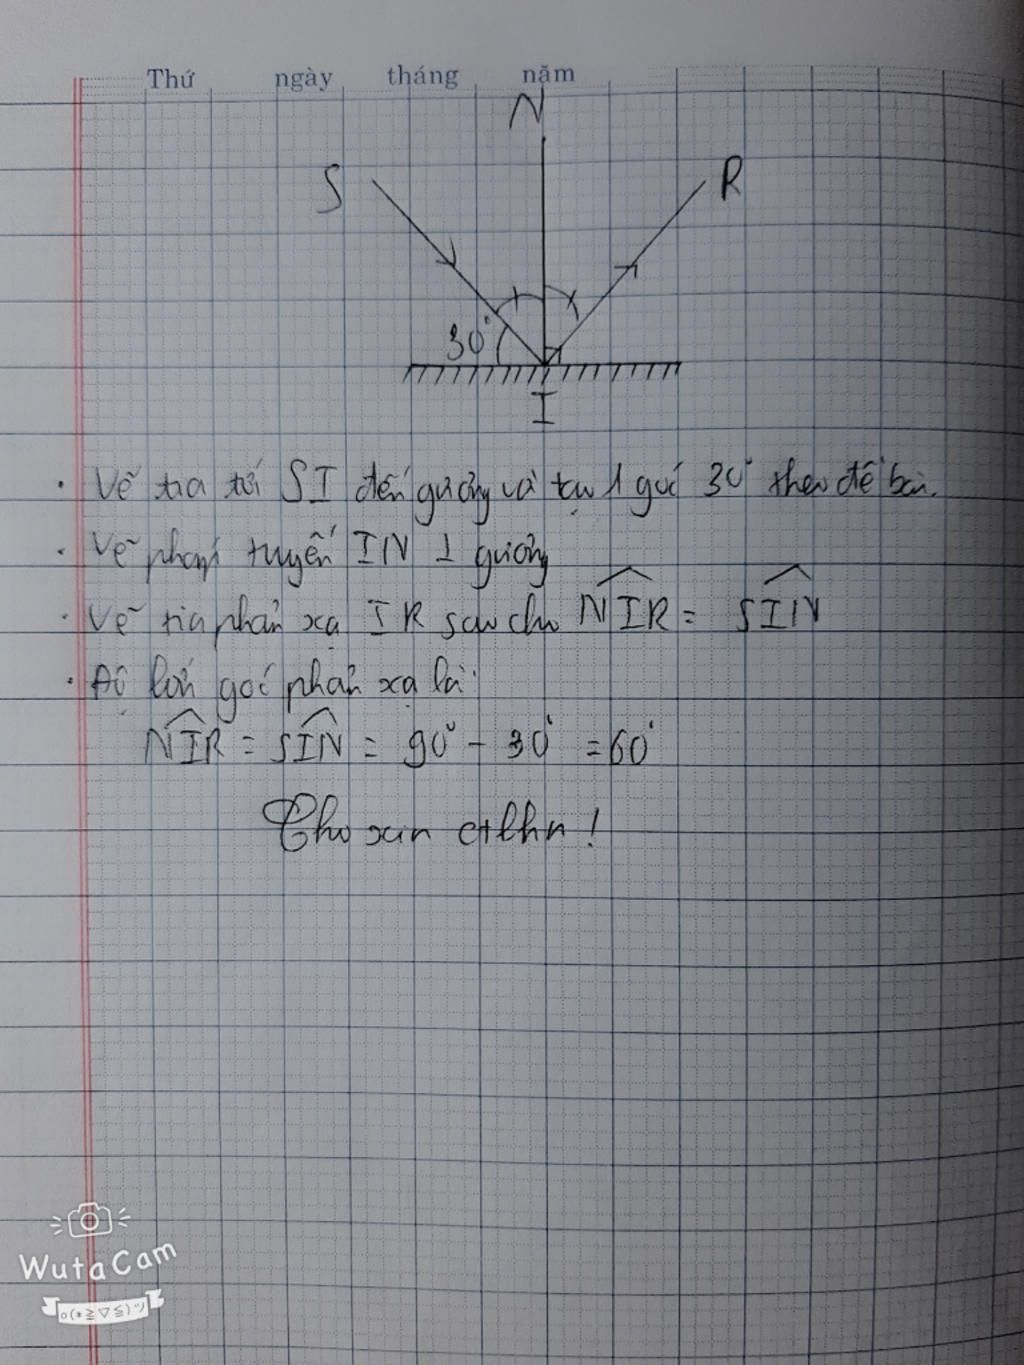 Thứ ngày tháng năm
N
S R
30°
I
. Vẽ tia tới SI đến gương và tạo 1 góc 30° theo đề bài.
. Vẽ pháp tuyến IN ⊥ gương
. Vẽ tia phản xạ IR sao cho N̂IR = ŜIN
. Độ lớn góc phản xạ là:
N̂IR = ŜIN = 90° - 30° = 60°
Cho xin ctlhn !
WutaCam
o(*≧▽≦)ツ